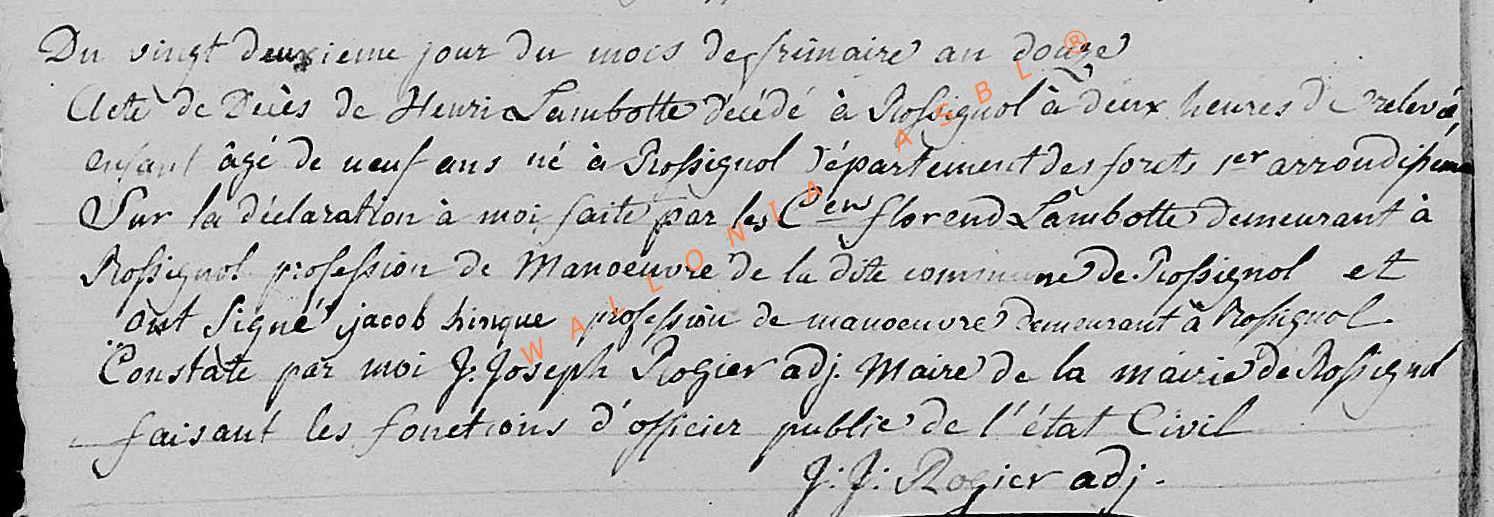 Du vingt deuxieme jour du mois de frimaire an douze
Acte de Décès de Henri Lambotte décédé à Rossignol à deux heures de relevée
enfant âgé de neuf ans né à Rossignol Département des forets 1er arrondissem
Sur la déclaration à moi faite par les Cen florend Lambotte demeurant à
Rossignol profession de Manoeuvre de la dite commune de Rossignol et
ont Signé jacob hinque profession de manoeuvre demeurant à Rossignol
Constaté par moi J. Joseph Rogier adj. Maire de la mairie de Rossignol
faisant les fonctions d'officier public de l'état Civil
J. J. Rogier adj.
WALLONIA ASBL ®